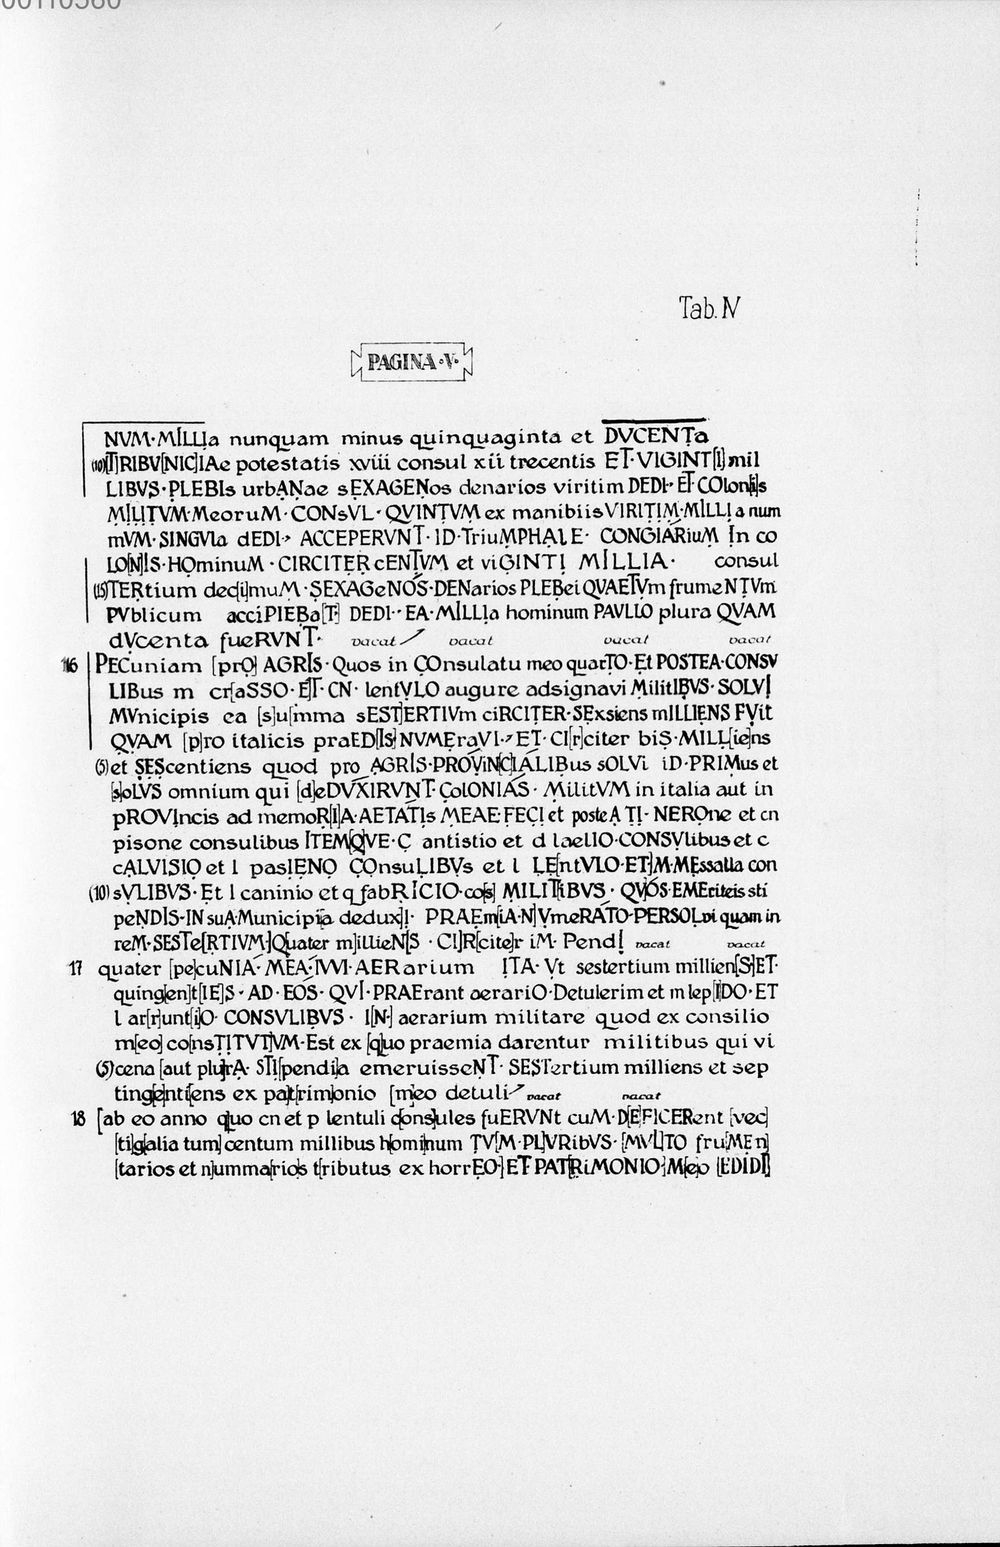 00110580
Tab. IV
PAGINA·V·
NVM·MILLIa nunquam minus quinquaginta et DVCENTa
(10)[T]RIBV[NIC]IAe potestatis xviii consul xii trecentis ET·VIGINT[I] mil
LIBVS·PLEBIs urbANae sEXAGENos denarios viritim DEDI· ET COlon[i]s
MILITVM·MeoruM·CONsVL·QVINTVM ex manibiis VIRITIM·MILLIa num
mVM·SINGVla dEDI·ACCEPERVNT·ID·TriuMPHAlE·CONGIARiuM In co
LO[N]IS·HOminuM·CIRCITER cENTVM et viGINTI MILLIA· consul
(15)TERtium dec[i]muM·SEXAGeNOS·DENarios PLEBei QVAETVm frumeNTVm
PVblicum acciPIEBa[T] DEDI·EA·MILLIa hominum PAVLLO plura QVAM
dVcenta fueRVNT· vacat vacat vacat vacat
16 PECuniam [prO] AGRIS·Quos in COnsulatu meo quarTO·Et POSTEA·CONSV
LIBus m cr[aSSO·E]T·CN·lentVLO augure adsignavi MilitIBVS·SOLVI
MVnicipis ea [s]u[mma sEST]ERTIVm ciRCITER·SExsiens mILLIENS FVit
QVAM [p]ro italicis praED[IS] NVMEraVI·ET·CI[r]citer biS·MILL[ie]ns
(5)et SEScentiens quod pro AGRIS·PROViN[C]IALIBus sOLVi iD·PRIMus et
[s]oLVS omnium qui [d]eDVXIRVNT·ColONIAS·MilitVM in italia aut in
pROVIncis ad memoR[I]A·AETATIs MEAE·FECI et posteA TI·NEROne et cn
pisone consulibus ITEM[Q]VE·C antistio et d laelIO·CONSVlibus et c
cALVISIO et l pasIENO COnsuLIBVs et l LE[ntVLO·ET]M·MEssalla con
(10)sVLIBVS·Et l caninio et q fabRICIO·co[s] MILIT[I]BVS·QVOS·EMEriteis sti
peNDIS·IN suA·Municipi[a dedux]I· PRAEm[iA·N]VmeRATO·PERSOLvi quam in
reM·SESTe[RTIVM·]Q[uater m]illieN[S·CI]R[cite]r iM·PendI vacat vacat
17 quater [pe]cuNIA·MEA·IVVI·AERarium ITA·Vt sestertium millien[S]ET·
quing[en]t[IE]S·AD·EOS·QVI·PRAErant aerariO·Detulerim et m lep[I]DO·ET
l ar[r]unt[i]O·CONSVLIBVS·I[N·] aerarium militare quod ex consilio
m[eo] co[nsTITVT]VM·Est ex [q]uo praemia darentur militibus qui vi
(5)cena [aut plu]rA·STI[pendi]a emeruisseNT·SESTertium milliens et sep
ting[e]nti[ens ex pa]t[rim]onio [m]eo detuli vacat vacat
18 [ab eo anno q]uo cn et p lentuli c[ons]ules fuERVNt cuM·D[E]FICERent [vec]
[ti]g[alia tum] centum millibus h[omi]num TV[M·PL]VRibVS·[MVL]TO fru[MEn]
[tarios et n]umma[rio]s t[ributus ex horrEO·]ET PAT[RiMONIO]M[eo [EDIDI]